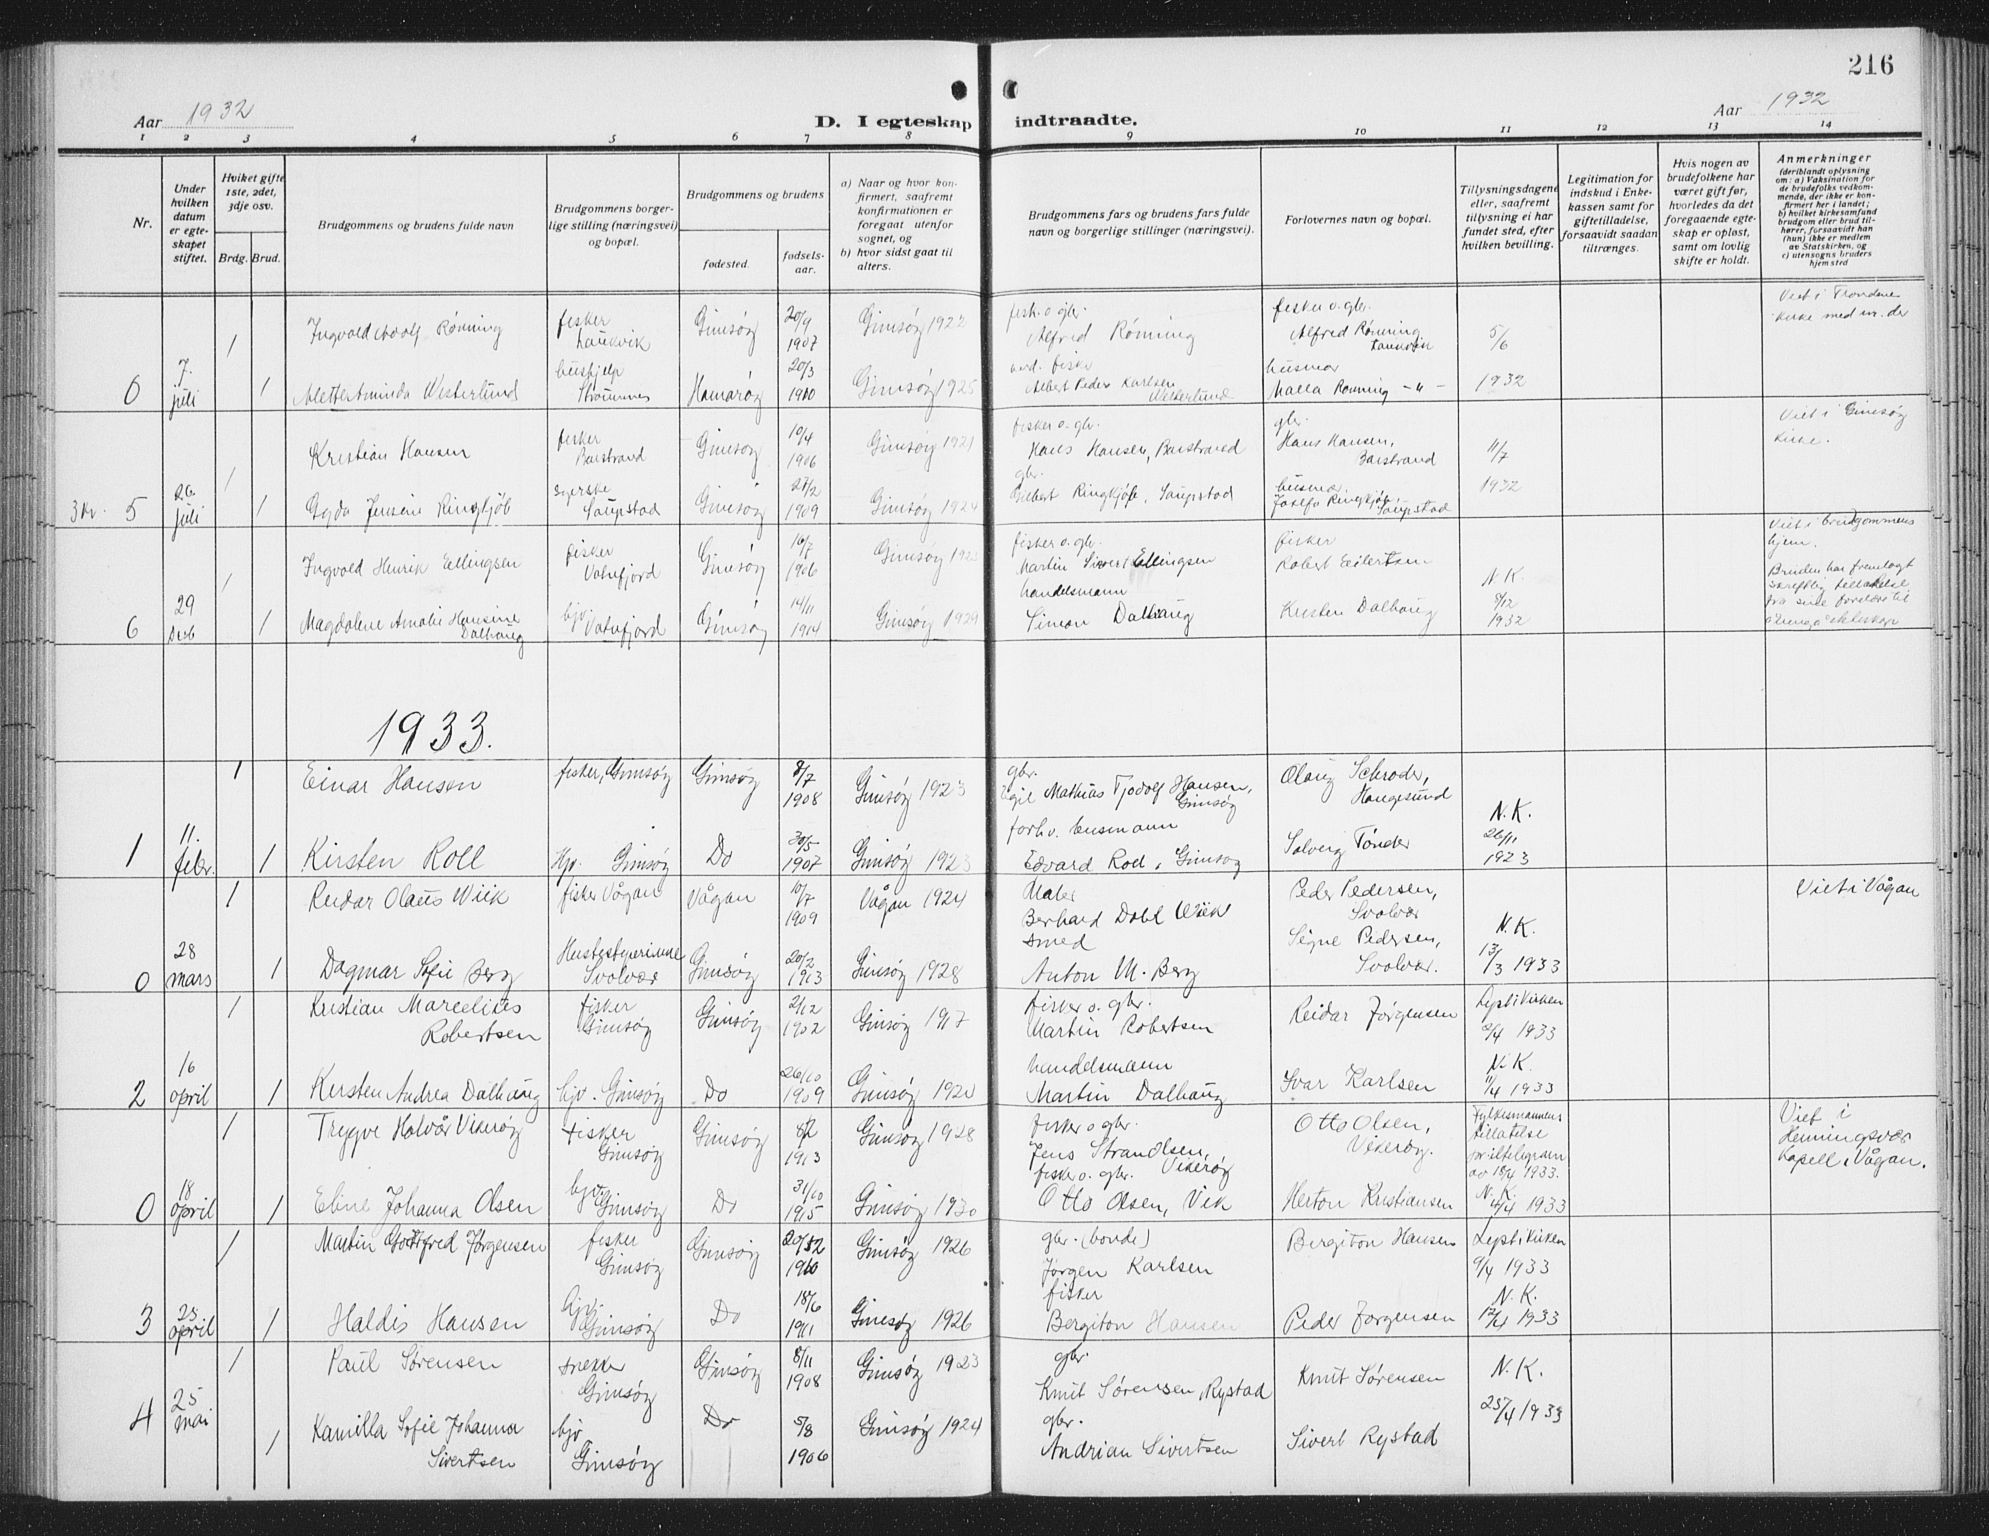 216
Aar 1932
D. I egteskap indtraadte.
Aar 1932
1 2 3 4 5 6 7 8 9 10 11 12 13 14
Nr.
Under hvilken datum er egteskapet stiftet.
Hviket gifte 1ste, 2det, 3dje osv.
Brdg. Brud.
Brudgommens og brudens fulde navn
Brudgommens borgerlige stilling (næringsvei) og bopæl.
Brudgommens og brudens
fødested.
fødselsaar.
a) Naar og hvor konfirmert, saafremt konfirmationen er foregaat utenfor sognet, og
b) hvor sidst gaat til alters.
Brudgommens fars og brudens fars fulde navn og borgerlige stillinger (næringsvei).
Forlovernes navn og bopæl.
Tillysningsdagene eller, saafremt tillysning ei har fundet sted, efter hvilken bevilling.
Legitimation for indskud i Enkekassen samt for giftetilladelse, forsaavidt saadan tiltrænges.
Hvis nogen av brudefolkene har været gift før, hvorledes da det foregaaende egteskap er opløst, samt om lovlig skifte er holdt.
Anmerkninger (deriblandt oplysning om: a) Vaksination for de brudefolks vedkommende, der ikke er konfirmert her i landet; b) hvilket kirkesamfund brudgom eller brud tilhører, forsaavidt han (hun) ikke er medlem av Statskirken, og c) utensogns bruders hjemsted
1 Ingvald Adolf Rønning fisker Laukvik Gimsøy 20/9 1907 Gimsøy 1922 fisk. o. gbr. Alfred Rønning fisker o. gbr. Alfred Rønning Laukvik 5/6 Viet i Trondenes kirke
0 7. juli 1 Westerlund hushjelp Strømnes Hamarøy 20/3 1910 Gimsøy 1925 fisker Albert Peder Karlsen Westerlund husmor Malla Rønning -"- 1932
1 Kristian Hansen fisker Barstrand Gimsøy 10/4 1906 Gimsøy 1921 fisker o. gbr. Hans Hansen, Barstrand gbr. Hans Hansen, Barstrand 11/7 Viet i Gimsøy kirke.
5 26. juli 1 Gyda Jensine Ringkjøb syerske Saupstad Gimsøy 27/2 1909 Gimsøy 1924 gbr. Ringkjøb, Saupstad husmor Ringkjøb, Saupstad 1932
1 Ingvald Henrik Ellingsen fisker Vatnfjord Gimsøy 16/7 1906 Gimsøy fisker o. gbr. Martin Sivert Ellingsen fisker Robert Eilertsen N.K. Viet i brudgommens hjem.
6 29 Des 1 Magdalene Amalie Hansine Dalhaug hjv Vatnfjord Gimsøy 14/11 1914 Gimsøy 1929 handelsmann Simon Dalhaug Kristen Dalhaug 8/12 1932 Bruden har fremlagt skriftlig tillatelse fra sine foreldre til
1933.
1 Einar Hansen fisker, Gimsøy Gimsøy 8/7 1908 Gimsøy 1923 gbr. Egil Mathias Tjodolf Hansen, Gimsøy Olaug Schrøder, Haugesund N.K.
1 11. febr. 1 Kirsten Roll Hjv. Gimsøy Do 30/5 1907 Gimsøy 1923 forhv. husmann Edvard Roll, Gimsøy Solveig Tønder 26/11 1923
1 Reidar Olaus Wiik fisker Vågan Vågan 10/7 1909 Vågan 1924 Maler Berhard Dahl Wiik Peder Pedersen, Svolvær N.K. Viet i Vågan
0 28 mars 1 Dagmar Sofie Berg Husbestyrerinne Svolvær Gimsøy 20/2 1913 Gimsøy 1928 smed Anton M. Berg Signe Pedersen, Svolvær. 13/3 1933
1 Kristian Marcelius Robertsen fisker Gimsøy Gimsøy 2/12 1902 Gimsøy 1917 fisker o. gbr. Martin Robertsen Reidar Jørgensen Lyst i kirken 2/4 1933
2 16 april 1 Kirsten Andrea Dalhaug hjv. Gimsøy Do 26/10 1909 Gimsøy 1920 handelsmann Martin Dalhaug Ivar Karlsen N.K. 11/4 1933
1 Trygve Halvår Vikerøy fisker Gimsøy Gimsøy 1913 Gimsøy 1928 fisker o gbr. Jens Strandsen, Vikerøy Otto Olsen, Vikerøy. Fylkesmannens tillatelse pr iltelegram av 18/4 1933. Viet i Henningsvær kapell i Vågan.
0 18 april 1 Eline Johanna Olsen hjv Gimsøy Do 31/10 1915 Gimsøy 1930 fisker o. gbr. Otto Olsen, Vik Herton Kristiansen N.K. 1933
1 Martin Gottfred Jørgensen fisker Gimsøy Gimsøy 1910 Gimsøy 1926 gbr. (bonde) Jørgen Karlsen Bergiton Hansen Lyst i kirken 9/4 1933
3 23. april 1 Haldis Hansen hjv. Gimsøy Do 18/6 1911 Gimsøy 1926 fisker Bergiton Hansen Peder Jørgensen N.K. 12/4 1933
1 Paul Sørensen snekker Gimsøy Gimsøy 8/11 1908 Gimsøy 1923 gbr. Knut Sørensen, Rystad Knut Sørensen N.K.
4 25 mai 1 Kamilla Sofie Johanna Sivertsen hjv Gimsøy Do 5/8 1906 Gimsøy 1924 gbr. Andrian Sivertsen Sivert Rystad 25/4 1933